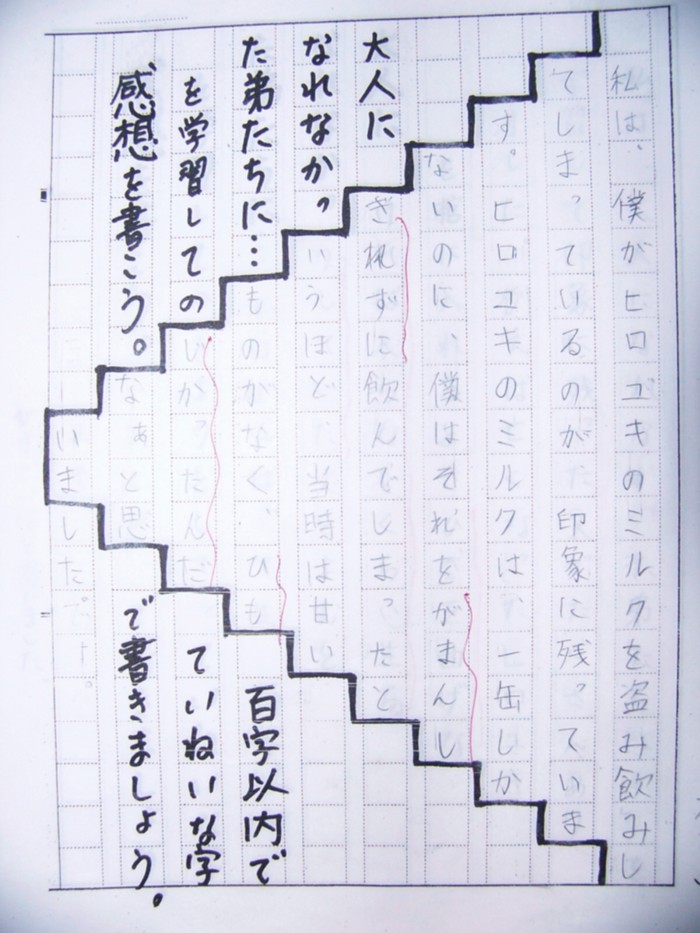 私は、僕がヒロユキのミルクを盗み飲みし
てしまっているのが印象に残っていま
す。ヒロユキのミルクは、一缶しか
ないのに、僕はそれをがまんし
きれずに飲んでしまったと
いうほど、当時は甘い
ものがなく、ひも
じかったんだ
なぁと思
いました。
大人に
なれなかっ
た弟たちに…
を学習しての
感想を書こう。
百字以内で
ていねいな字
で書きましょう。